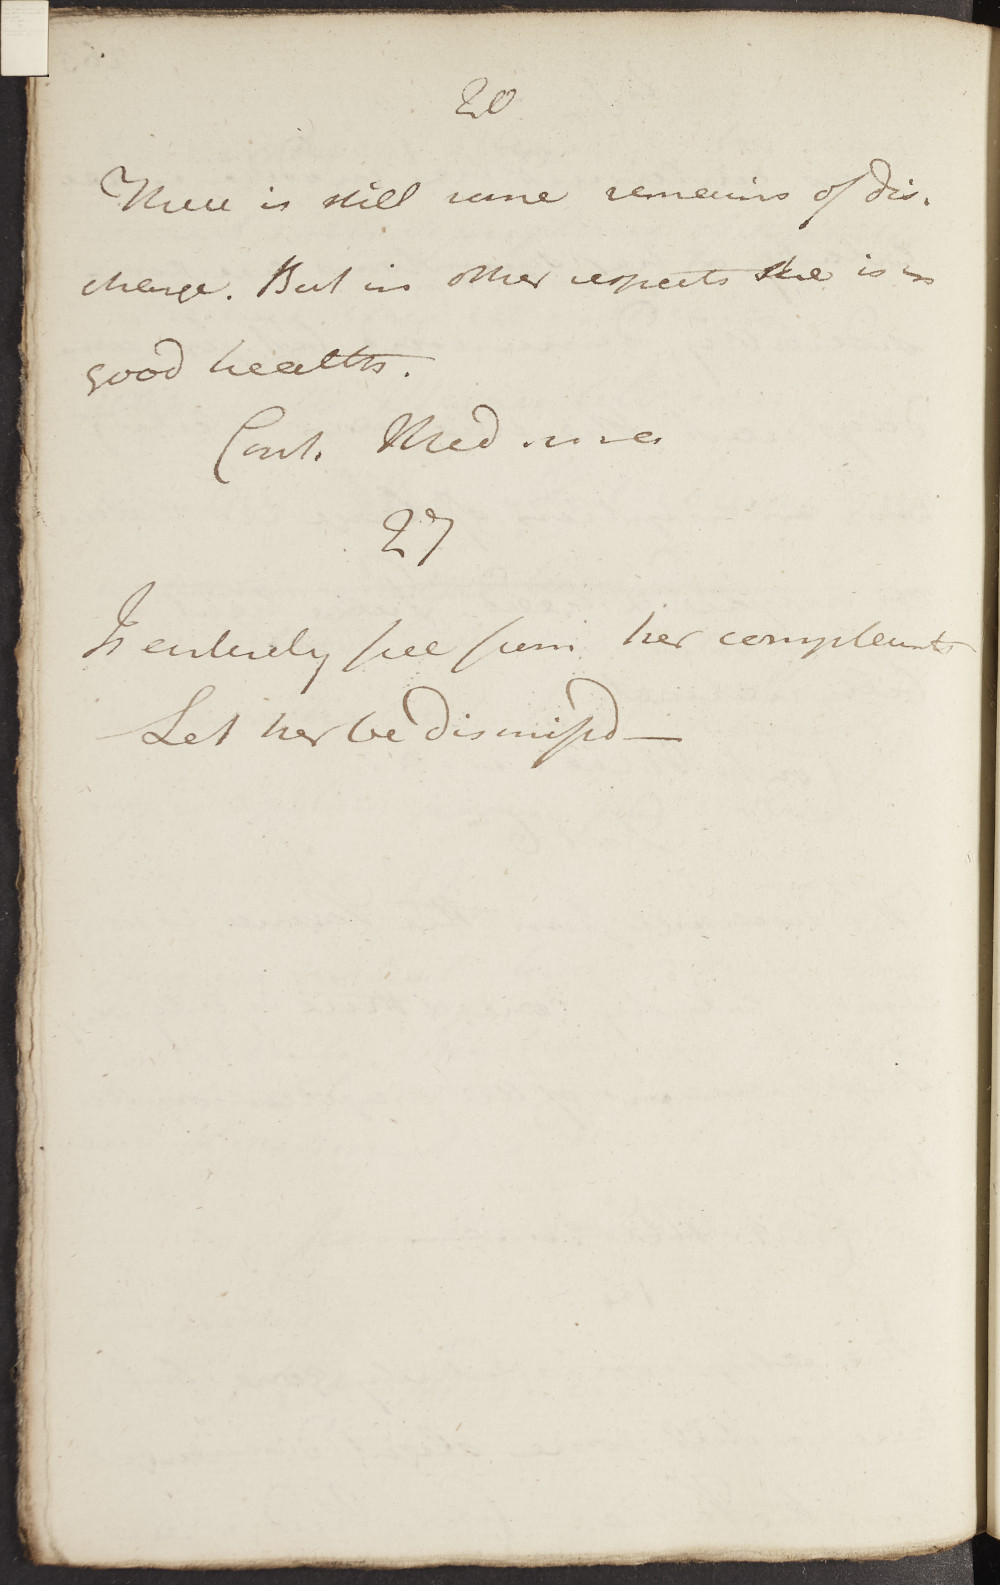 20
There is still some remains of dis.
charge. But in other respects she is in
good health.
Cont. Med
27
Is entirely free from her complaints
Let her be dismissd —